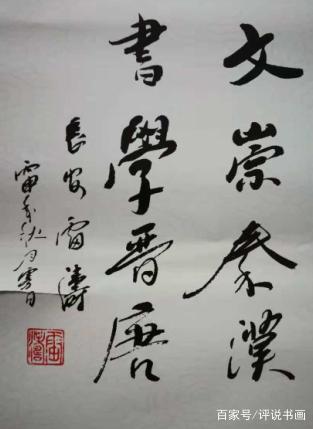 文崇秦漢
書學晉唐
長安雷濤
秋月
百家号/评说书画